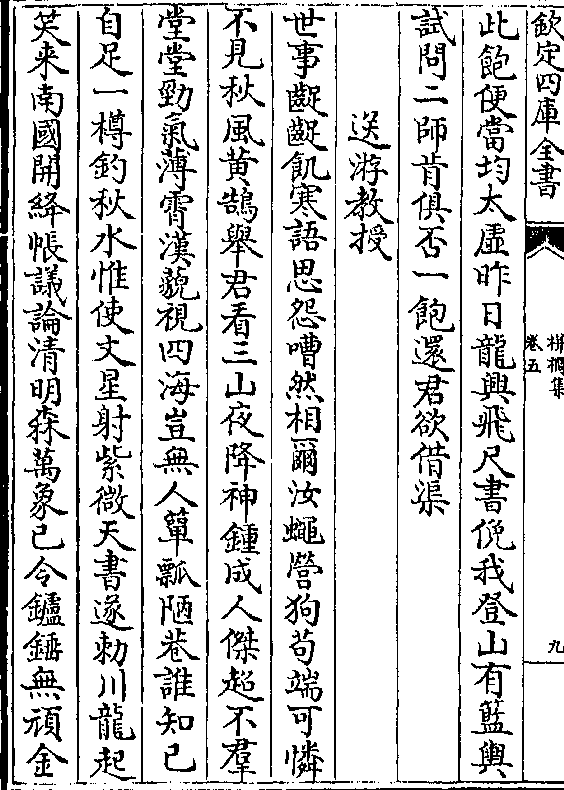 欽定四庫全書
栟櫚集
卷五
九
此飽便當均太虛昨日龍興飛尺書俛我登山有籃輿
試問二師肯俱否一飽還君欲借渠
送游教授
世事齪齪飢寒語思怨嘈然相爾汝蠅營狗苟端可憐
不見秋風黄鵠舉君看三山夜降神鍾成人傑超不羣
堂堂勁氣薄霄漢藐視四海豈無人簞瓢陋巷誰知已
自足一樽釣秋水惟使文星射紫微天書遂勅川龍起
笑来南國開絳帳議論清明森萬象已令鑪錘無頑金